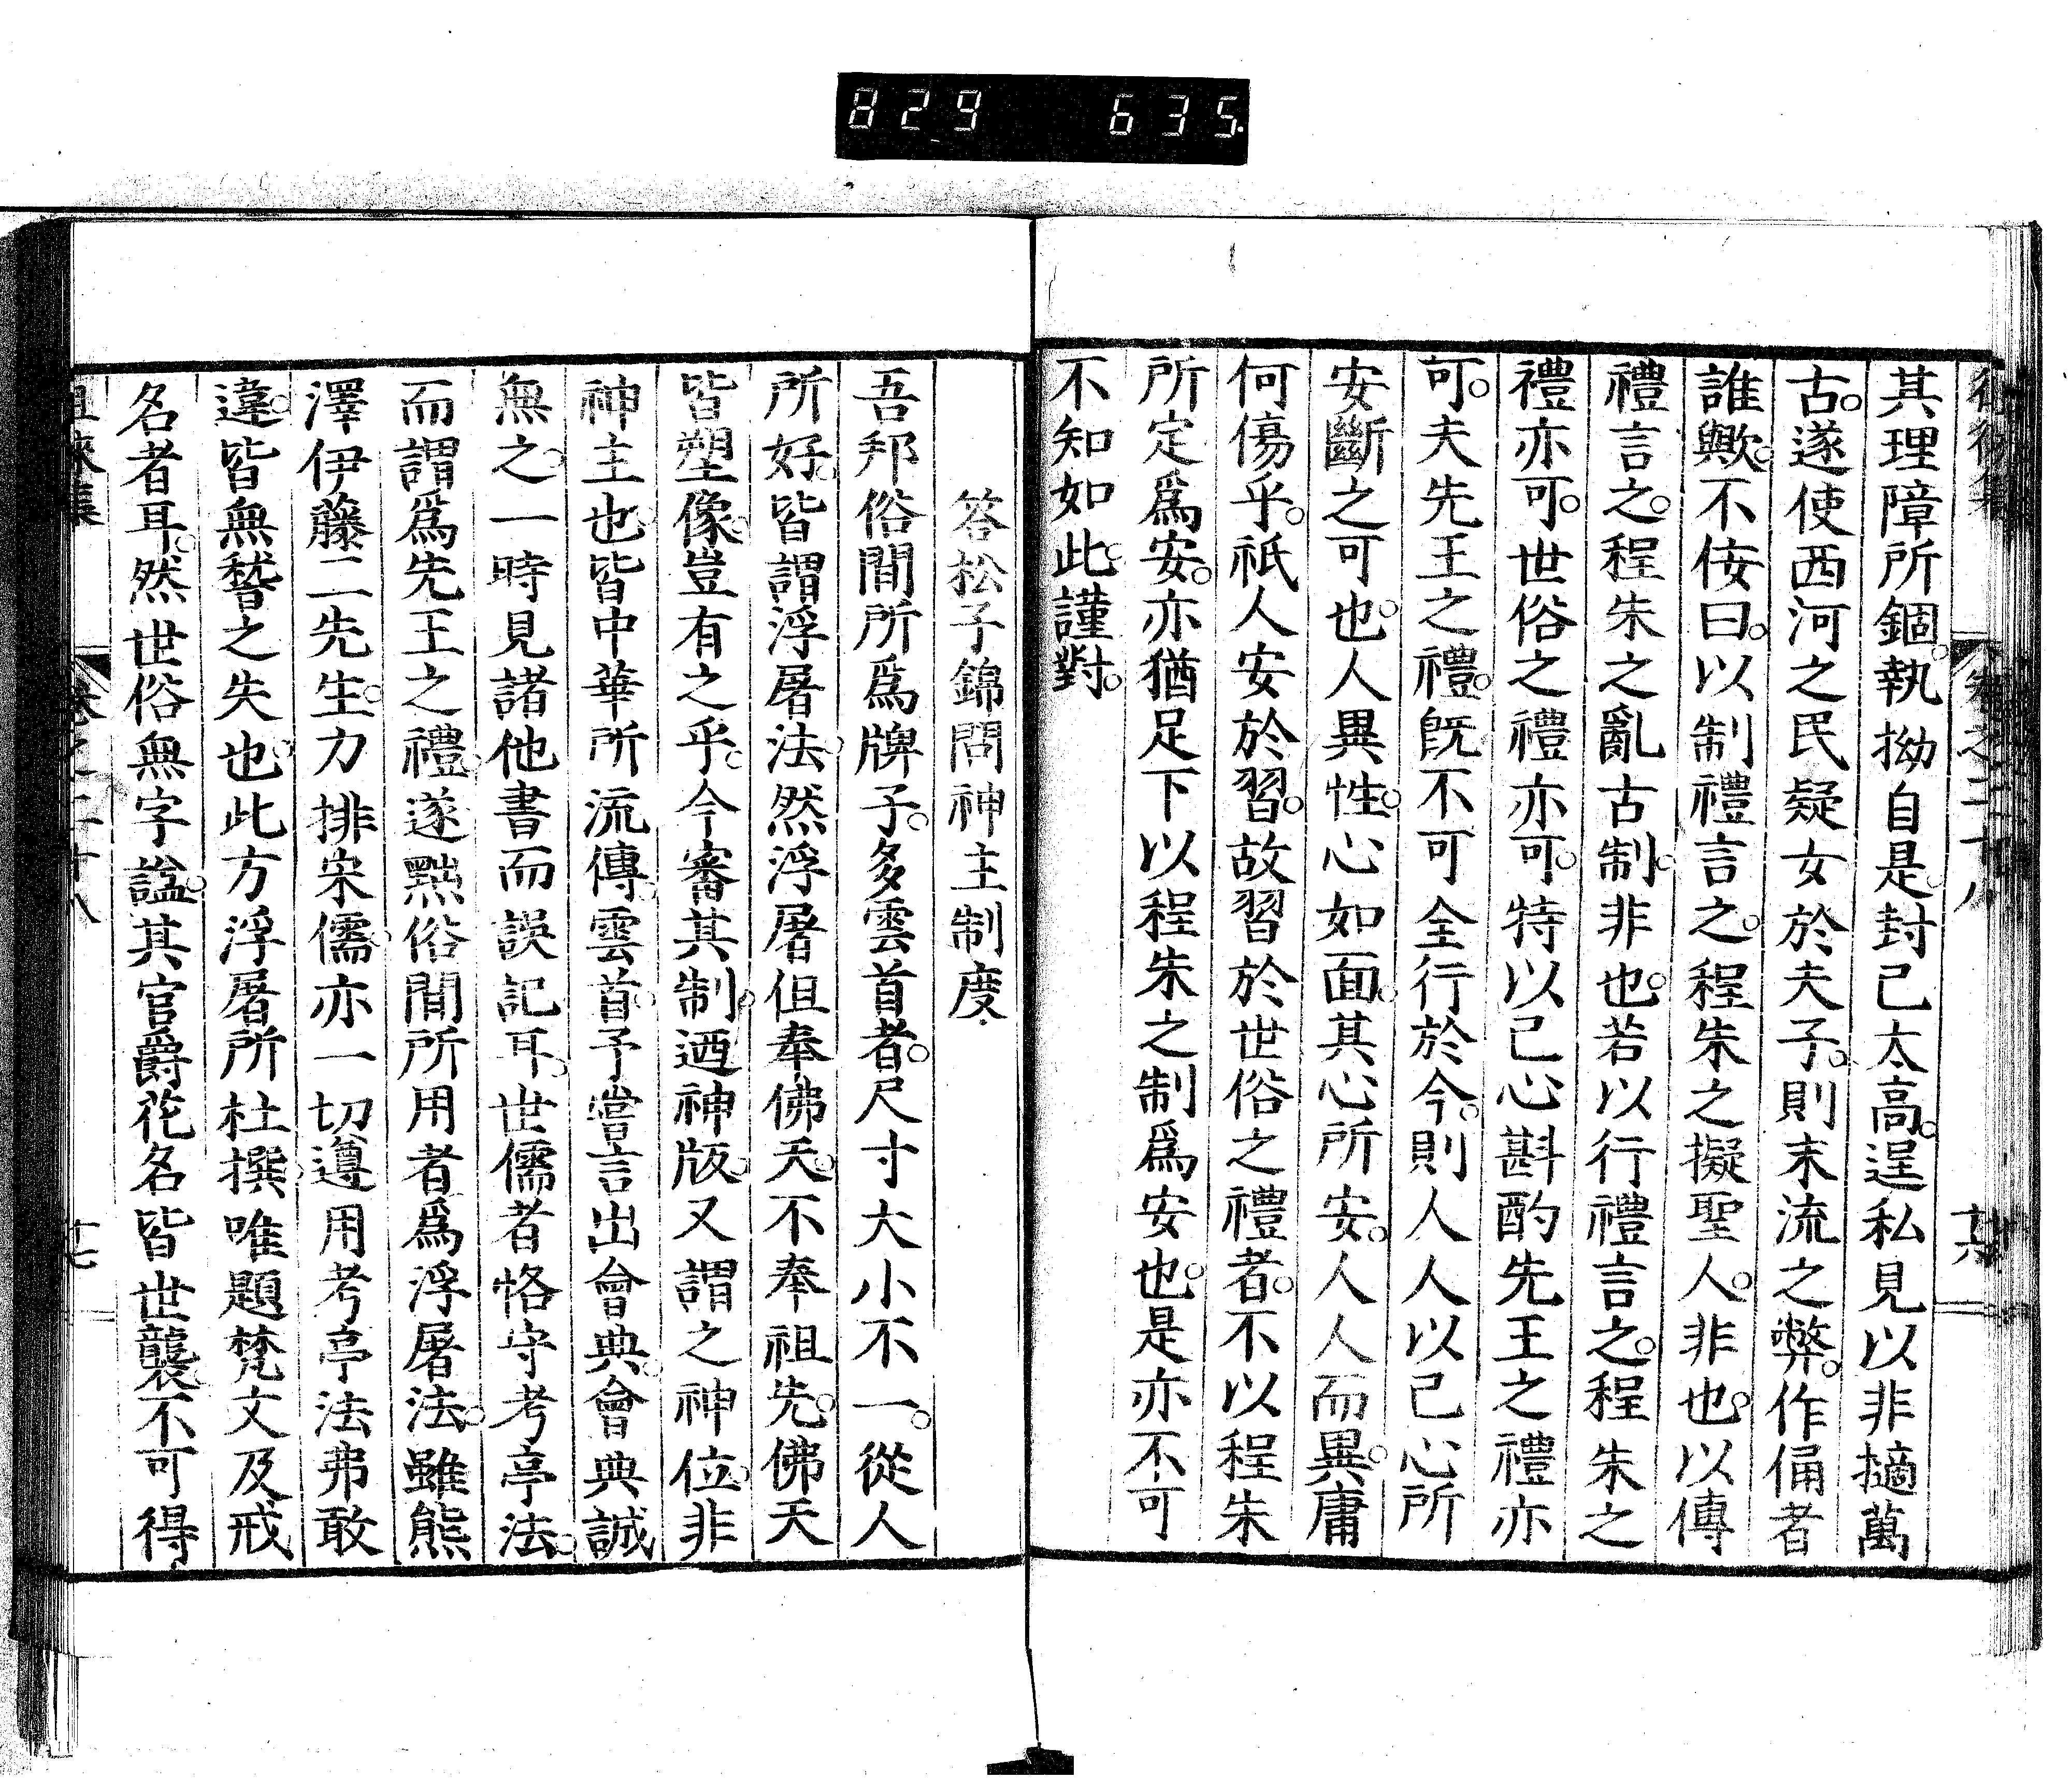 829 635
徂徠集 卷之二十八 十六
其理障所錮。執拗自是。封己太高。逞私見以非擿萬
古。遂使西河之民疑女於夫子。則末流之弊。作俑者
誰歟。不佞曰。以制禮言之。程朱之擬聖人。非也。以傳
禮言之。程朱之亂古制。非也。若以行禮言之。程朱之
禮亦可。世俗之禮亦可。特以己心斟酌先王之禮亦
可。夫先王之禮。旣不可全行於今。則人人以己心所
安斷之可也。人異性。心如面。其心所安。人人而異。庸
何傷乎。祇人安於習。故習於世俗之禮者。不以程朱
所定爲安。亦猶足下以程朱之制爲安也。是亦不可
不知如此。謹對。
答松子錦問神主制度
吾邦俗間所爲牌子。多雲首者。尺寸大小不一。從人
所好。皆謂浮屠法。然浮屠但奉佛天。不奉祖先。佛天
皆塑像。豈有之乎。今審其制。迺神版。又謂之神位。非
神主也。皆中華所流傳。雲首。予嘗言出會典。會典誠
無之。一時見諸他書而誤記耳。世儒者恪守考亭法。
而謂爲先王之禮。遂黜俗間所用者爲浮屠法。雖熊
澤伊藤二先生。力排宋儒。亦一切遵用考亭法弗敢
違。皆無稽之失也。此方浮屠所杜撰。唯題梵文及戒
名者耳。然世俗無字謚。其官爵花名皆世襲。不可得
徂徠集 卷之二十八 十七